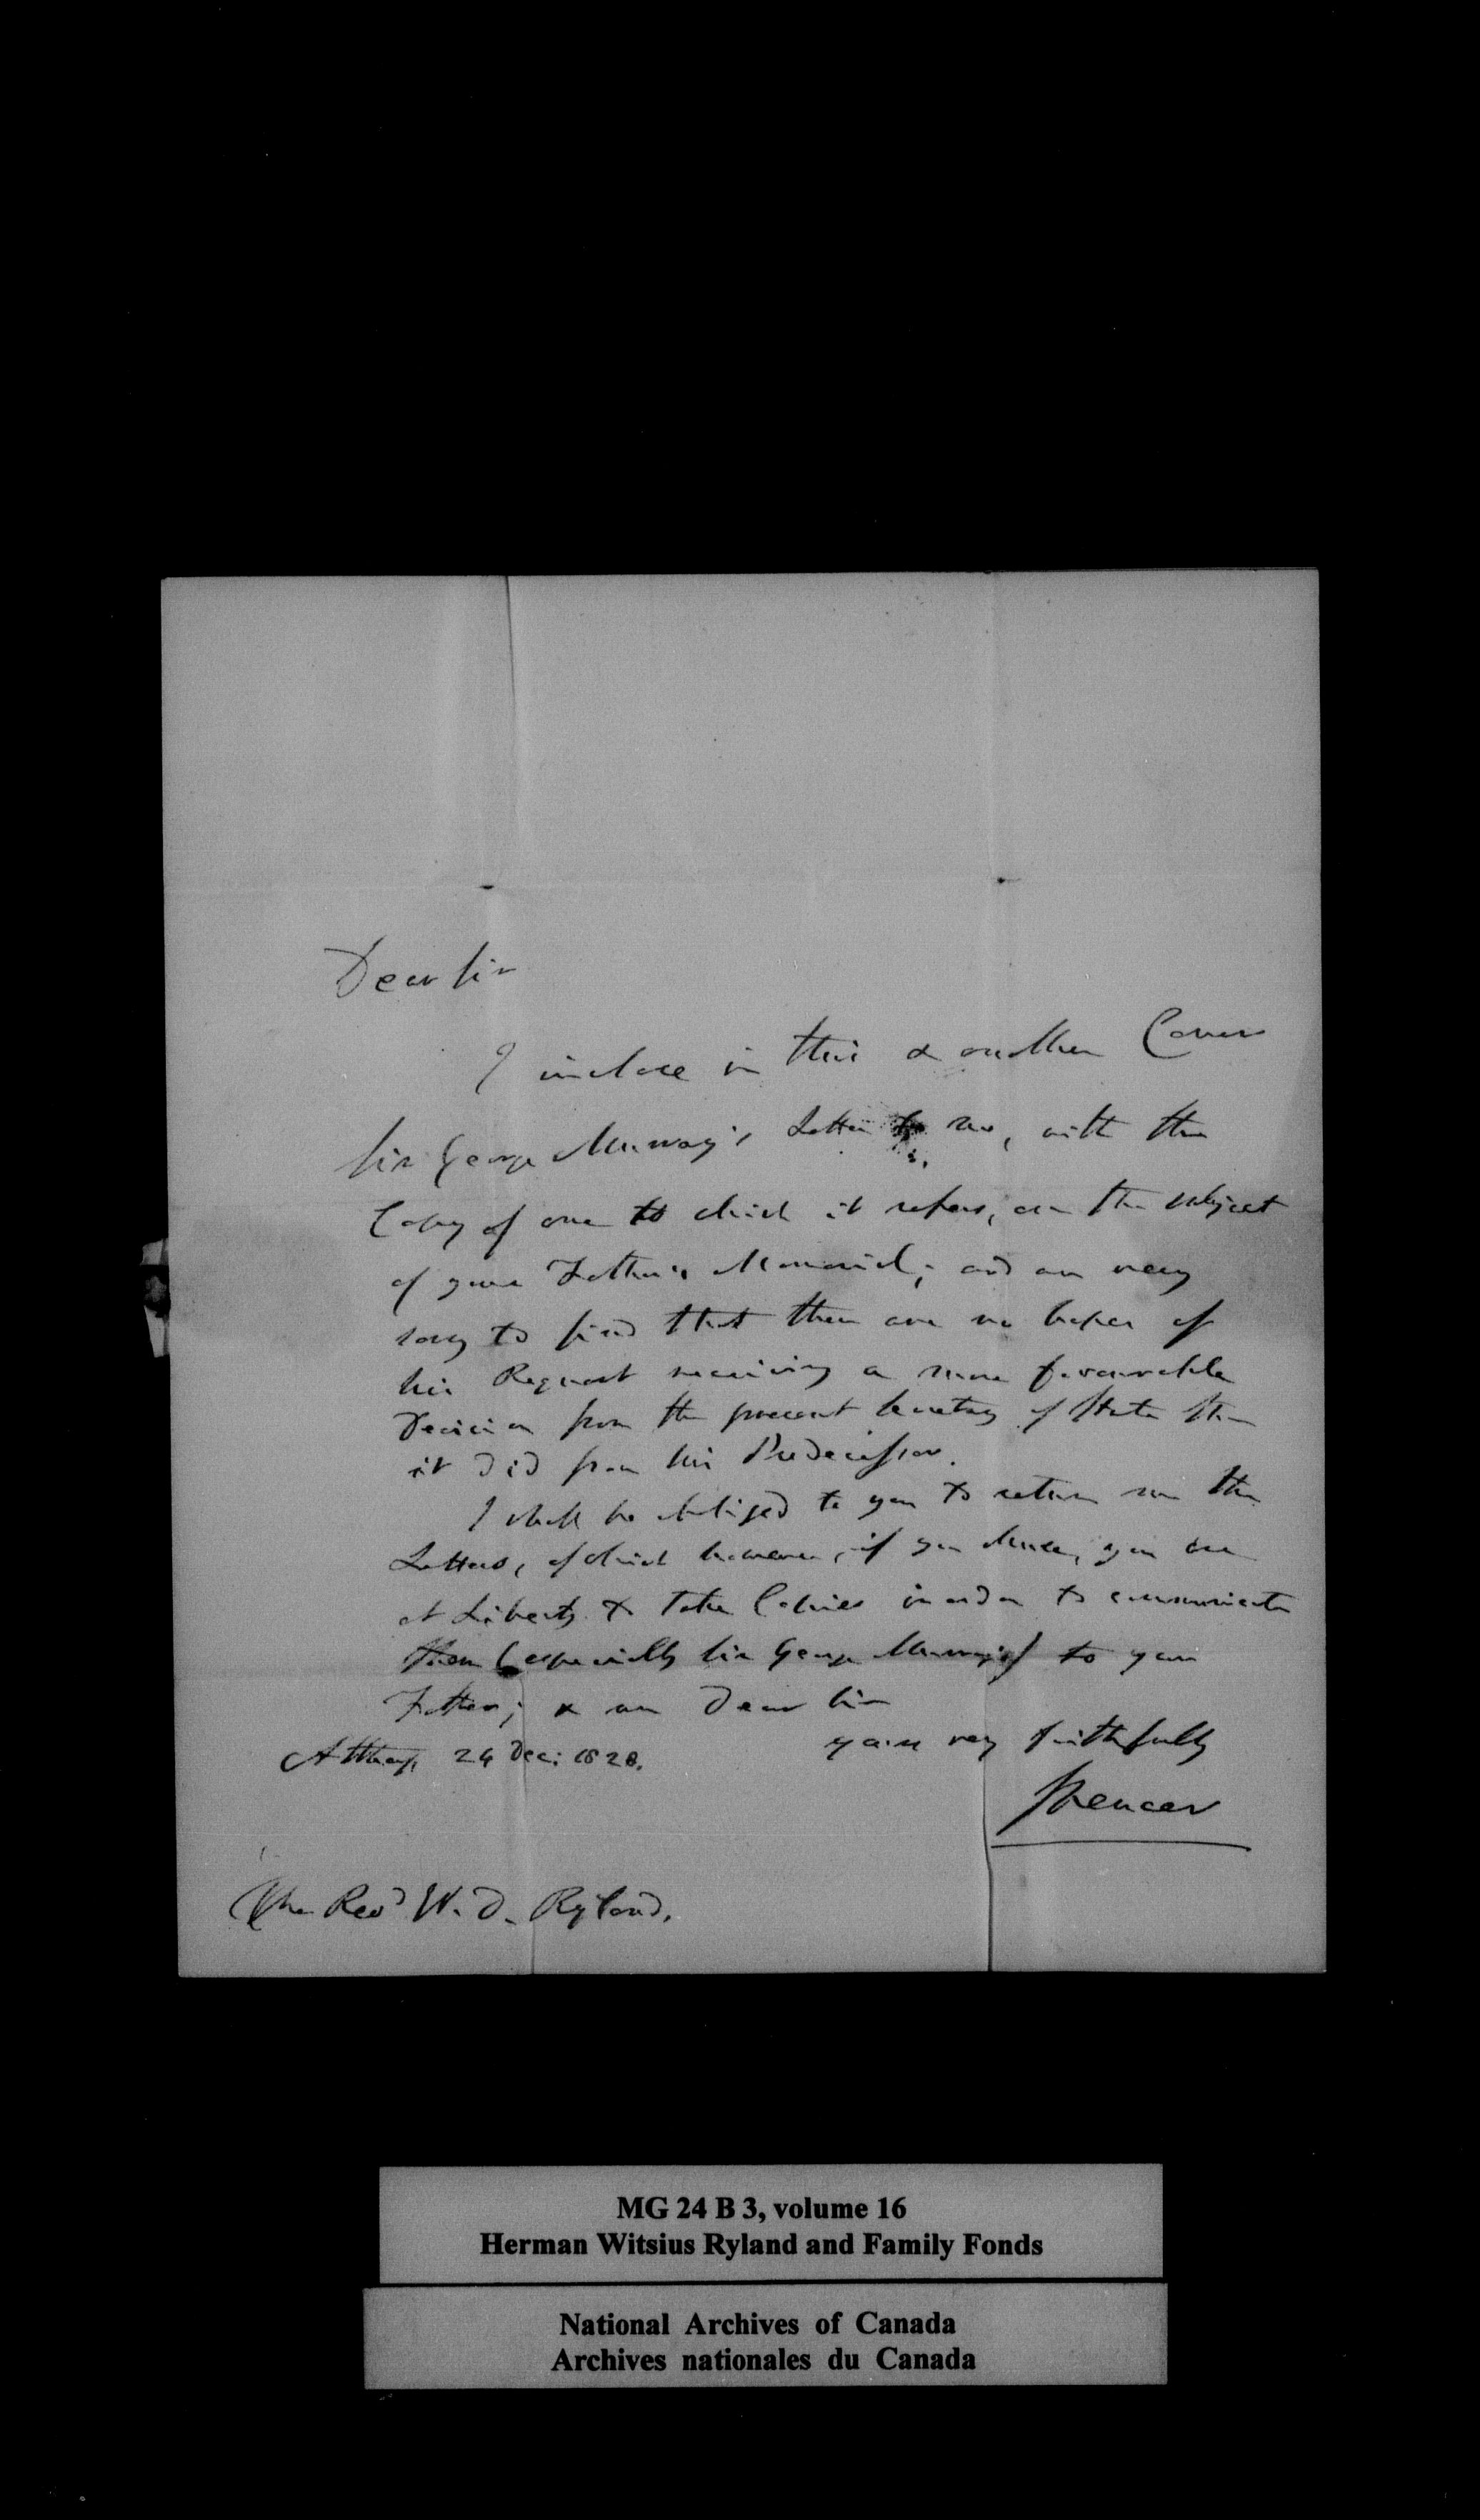 Dear Sir
I inclose in this & another Cover
Sir George Murray's Letter to me, with the
Copy of one to which it refers, on the subject
of your Father's Memorial; and am very
sorry to find that there are no hopes of
his Request receiving a more favourable
Decision from the present Secretary of State than
it did from his Predecessor.
I shall be obliged to you to return me the
Letters, of which however, if you chuse, you are
at Liberty to take Copies in order to communicate
them (especially Sir George Murray's) to your
Father; & am Dear Sir
yours very faithfully
Althorp 24 Dec: 1828.
Spencer
The Revd W. D. Ryland.
MG 24 B 3, volume 16
Herman Witsius Ryland and Family Fonds
National Archives of Canada
Archives nationales du Canada